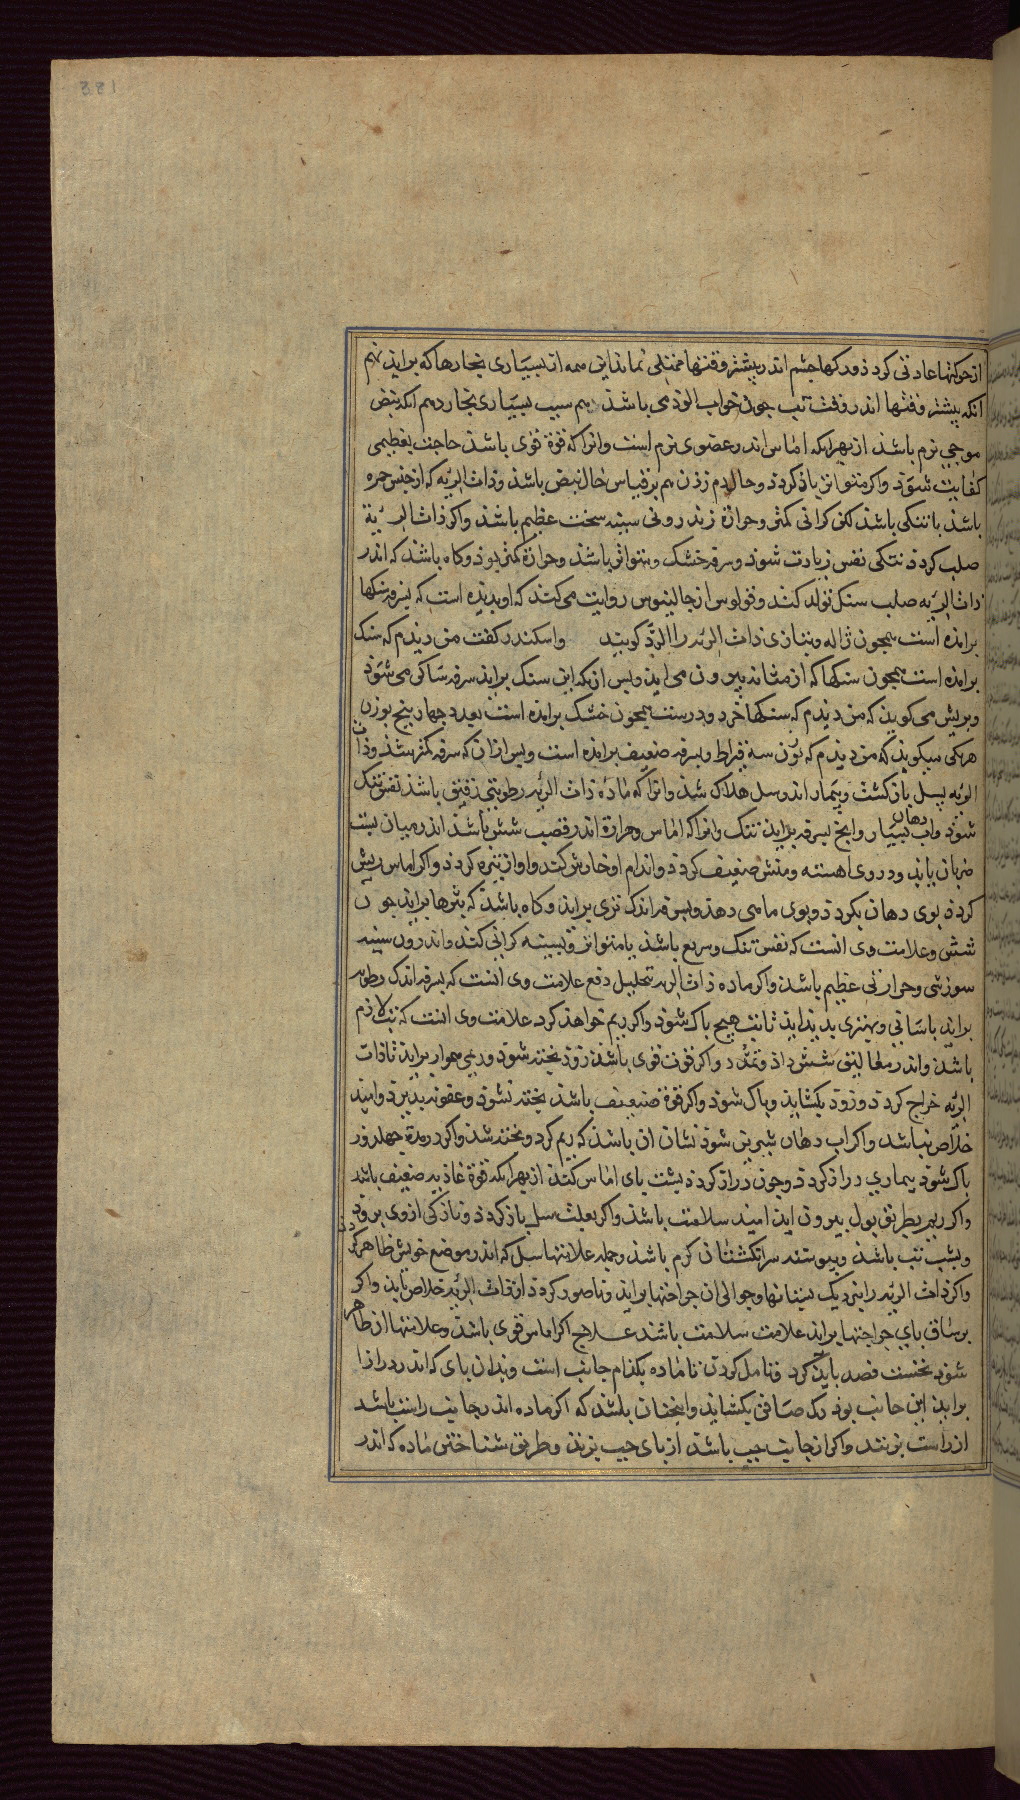 از حرکتها عادتی کردذ و رکهاء جشم اندر بیشتر وقتها ممتلی نماند این همه از بسیاری بخارها که براید نهم
انکه بیشتر وقتها اندر وقت تب جون خواب الوذمی باشد هم سبب بسیاری بخار دهم انکه نبض
موجی نرم باشد از بهر انکه اماس اندر عضوی نرم است و انرا که قوة قوی باشد حاجت بعظیمی
کفایت شود و اکر متواتر یاذ کردد و حال دم زذن هم بر قیاس حال نبض باشد و ذات الریه که از جنس حمره
باشد با تنکی باشد لکن کرانی کمتر و حرارة زندرونی سینه سخت عظیم باشد و اکر ذات الریه
صلب کردد تنکی نفس زیادت شود و سرفه خشک و متواتر باشد و حرارة کمتر بوذ و کاه باشد که اندر
ذات الریه صلب سنک تولد کند و فولوس از جالینوس روایت می کند که او دیده است که بسرفه سنکها
برامذه است همجون ژاله و بتازی ذات الریه را البرد کویند و اسکندر کفت من دیدم که سنک
برامذه است همجون سنکها که از مثانه بیرون می اید و بس از انکه این سنک براید سرفه ساکن می شود
و بریش می کوید که من دیدم که سنکهاء خرد و درست همجون خشک برامذه است بعدد جهار بنج بوزن
هریکی میکوید که من دیدم که بوزن سه قیراط و بسرفه ضعیف برامذه است و بس از ان که سرفه کمتر شد و ذات
الریه بسل بازکشت و بیمار اندر سل هلاک شد و انرا که ماده ذات الریه رطوبتی رقیق باشد نفس تنک
شود و اب دهان بسیار و انج بسرفه براید تنک و انرا که اماس و حرارة اندر قصب شش باشد اندر میان بشت
ضربان یابد و در روی اهسته و منش ضعیف کردد و اندام او خارش کند و اواز تیزه کردد و اکر اماس ریش
کردد بوی دهان بکردد و بوی ماهی دهد و بسرفه اندک تری براید و کاه باشد که بثرها براید جون
شش و علامت وی انست که نفس تنک و سریع باشد یا متواتر و بسینه کرانی کند و اندرون سینه
سوزشی و حرارتی عظیم باشد و اکر ماده ذات الریه تحلیل دفع علامت وی انست که بسرفه اندک رطوبه
براید باسانی و بهتری بدید اید تا تب هیج باک شود و اکر ریم خواهد کرد علامت وی انست که تب لازم
باشد و اندر معالیق شش داذ و تمدد و اکر قوت قوی باشد زود بخته شود و ریمی هموار براید تا ذات
الریه خراج کردد و زود بکشاید و باک شود و اکر قوة ضعیف باشد بخته نشود و عفونه بذیرد و امید
خلاص نباشد و اکر اب دهان شیرین شود نشان ان باشد که ریم کرد و بخته شد و اکر در مدة جهل روز
باک شود بیماری دراز کردد و جون دراز کردد بشت بای اماس کند از بهر انکه قوة غاذیه ضعیف باشد
و اکر ریم بطریق بول بیرون اید امید سلامت باشد و اکر بعلت سل باز کردد و تازکی از وی برود
و بشب تب باشد و بیوسته سر انکشتان کرم باشد و جمله علامتهاء سل که اندر موضع خویش ظاهر کردد
و اکر ذات الریه را بنزدیک بستانها و حوالی ان جراحتها براید و ناصور کردد از ذات الریه خلاص یابد و اکر
بر ساق بای جراحتها براید علامت سلامت باشد علاج اکر اماس قوی باشد و علامتها از ظاهر
شود نخست فصد باید کرد و تامل کردن تا ماده بکذام جانب است و بدان بای که اندر درازا
برابر این جانب بوذ رک صافن بکشاید و انجنان باشد که اکر ماده اندر جانب راست باشد
از راست بزنند و اکر از جانب جب باشد از بای جب بزنند و طریق شناختن ماده که اندر